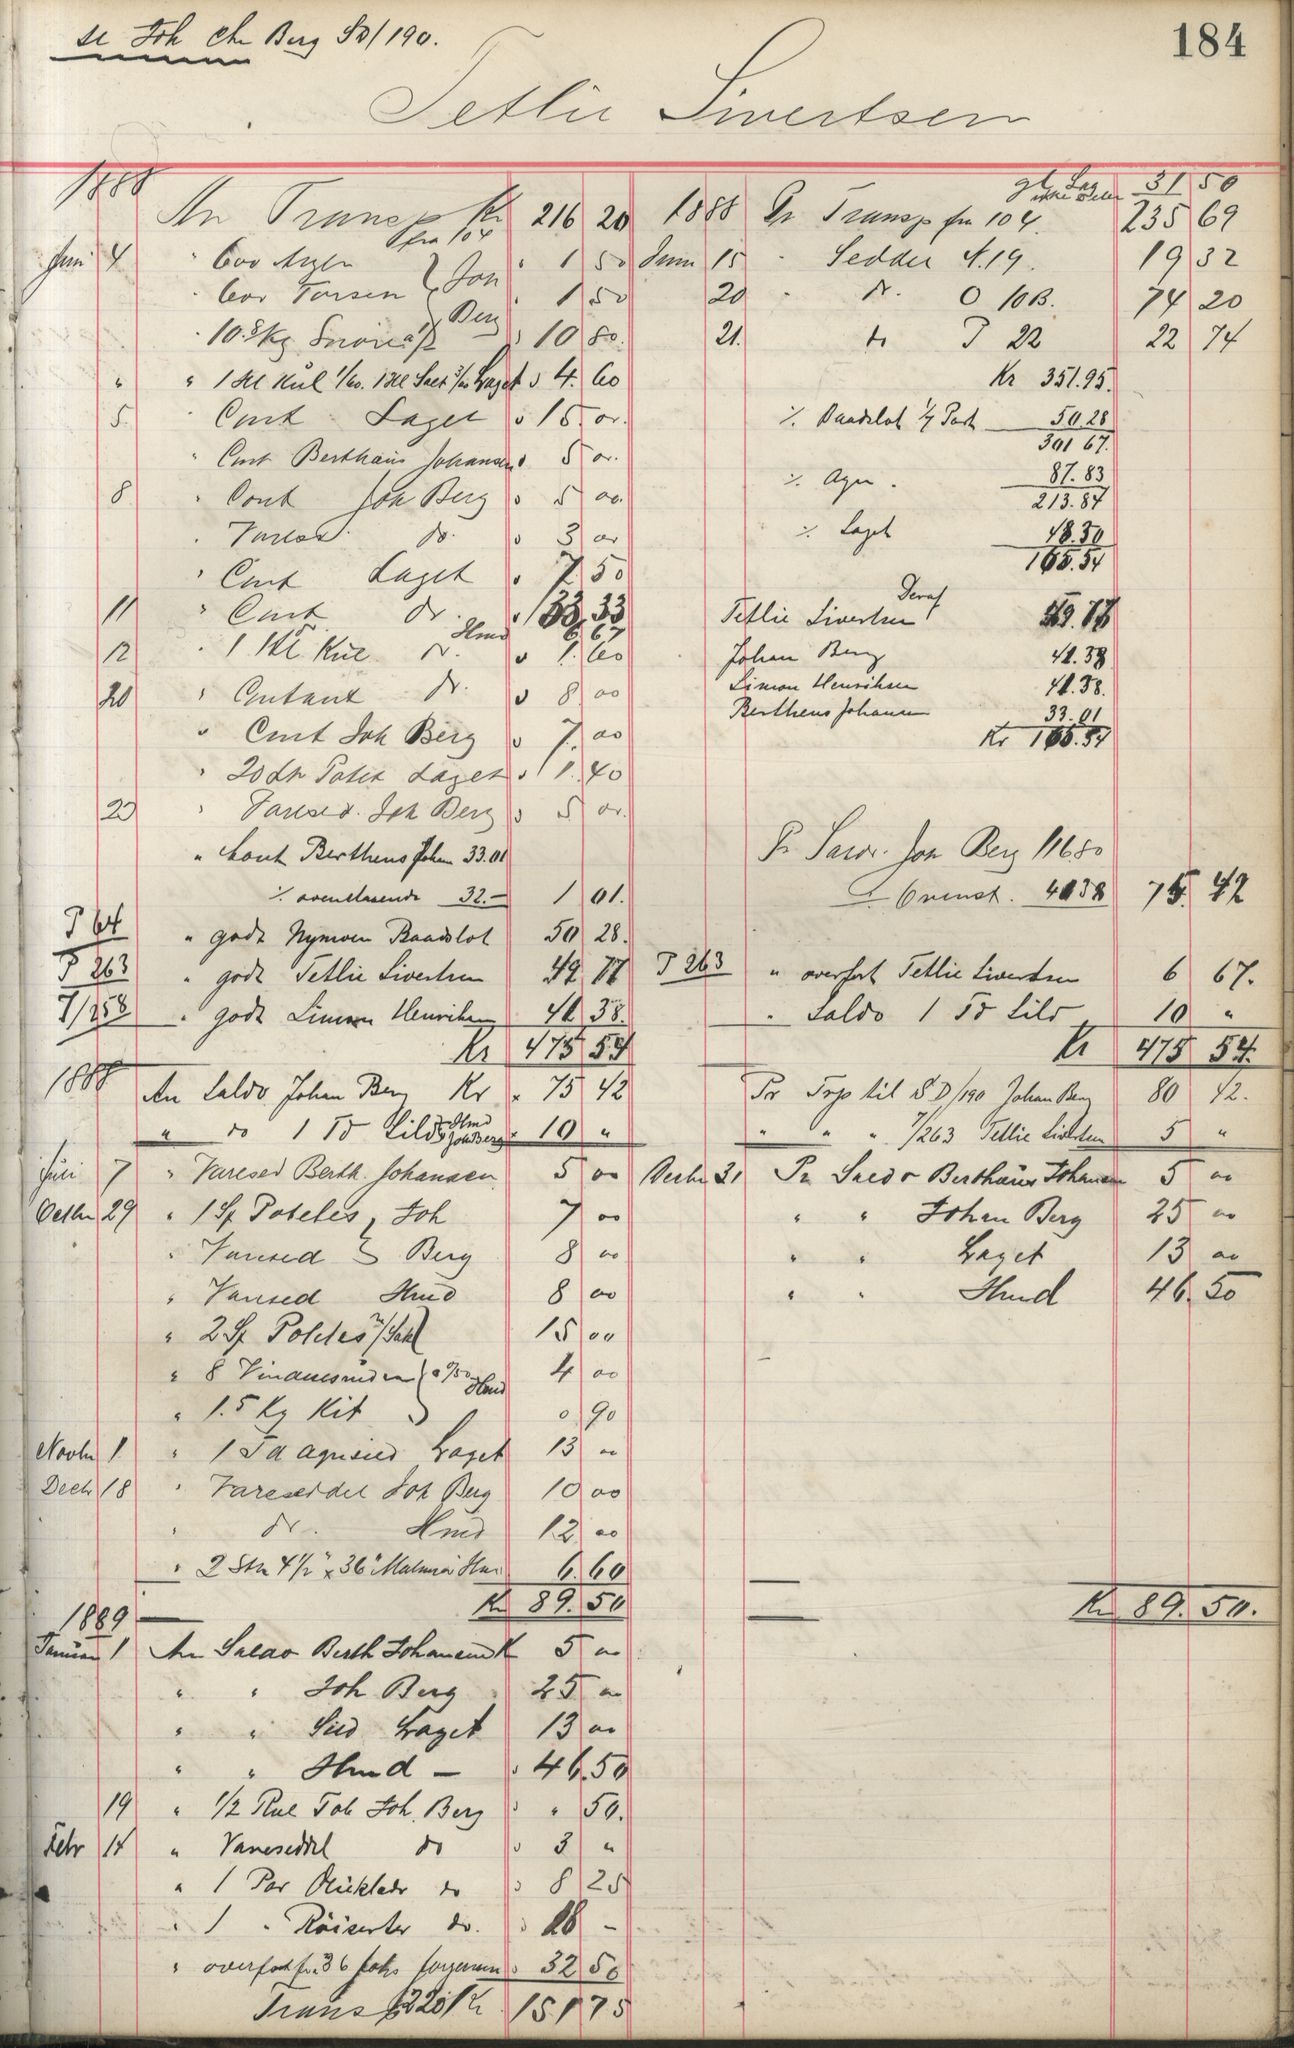 se Joh Chr Berg SD/190.
184
Tetlie Sivertsen
1888
An Transp Kr 216 20
fra 104
Juni 4 " Cov
" Cov Torsen } Jon Berg " 1 50
" 10.8 Kg " 10 80.
" " 1 Hl Kul 1/60. 1 Hl Salt 3/00 Laget " 4. 60
5. " Cont Laget " 15. 00.
" Cont Berthäus Johansen " 5 00.
8 " Cont Joh Berg " 5 00.
" Varesed. do. " 3 00
" Cont Laget " 7. 50
11 " Cont do. " 33. 33
Hmd 6 67
12 " 1 Hl Kul do. " 1. 60
20 " Contant do. " 8. 00
" Cont Joh Berg " 7. 00
" 20 Ltr Potet Laget " 1. 40
23 " Varesed. Joh Berg " 5 00.
" Cont Bertheus Johan 33.01
÷ ovenstaaende 32.- 1 01.
P 64 " godt Nymoen Baadslot 50 28.
P 263 " godt Tetlie Sivertsen 49 77
7/258 " godt Simon Henriksen 41 38.
Kr 475 54
1888 Pr Transp fra 104. 235 69
31 50
Juni 15 " Sedder N.19. 19 32
20 " do. O 10B. 74 20
21. do P 22 22 74
Kr 351.95.
÷ Baadslot 1/7 Part 50.28
301 67.
÷ Agn. 87.83
213.84
÷ Laget 48.30
165.54
Deraf
Tetlie Sivertsen 49.77
Johan Berg 41.38
Simon Henriksen 41.38.
Bertheus Johansen 33.01
Kr 165.54
Pr Saldo. Joh Berg 116.80
÷ Ovenst. 41 38 75. 42
P 263 " overført Tetlie Sivertsen 6 67.
" Saldo 1 Td Sild 10 "
Kr 475 54.
1888
An Saldo Johan Berg Kr " 75 42
" do 1 Td Sild Hmd Joh Berg " 10 "
Pr Trsp til SD/190 Johan Berg 80 42.
" " " 7/263 Tetlie Sivertsen 5 "
Juli 7 " Varesed Berth. Johansen 5 00
Octbr 29 " 1 Sk Poteter, Joh 7 00
" Varesed } Berg 8 00
" Varesed Hmd 8 00
" 2 Sk Poteter m/Sæk 15 00
" 8 Vinduesruder a 0/50 Hmd 4 00
" 1.5 Kg Kit 0 90
Novbr 1 " 1 Td agnsild Laget 13 00
Decbr 18 " Vareseddel Joh Berg 10 00
" do. Hmd 12 00
" 2 Stk 4 1/2" x 36" 6. 60
Kr 89. 50
Decbr 31 Pr Saldo Berthäus Johansen 5 00
" " Johan Berg 25 00
" " Laget 13 00
" " Hmd 46. 50
Kr 89. 50.
1889
Januar 1 An Saldo Berth Johansen Kr 5 00
" " Joh Berg 25 00
" " Sild Laget 13 00
" " Hmd — " 46. 50
19 " 1/2 Rul Tob Joh. Berg " " 50.
Febr 14 " Vareseddel do " 3 "
" 1 Par do " 8 25
" 1 " do. " 18 -
" overført fra 36 Johs Jørgensen " 32 50
Transp 220 Kr. 151 75